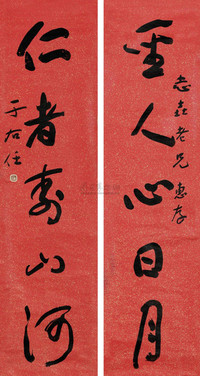 圣人心日月
志垚老兄惠存
仁者寿山河
于右任